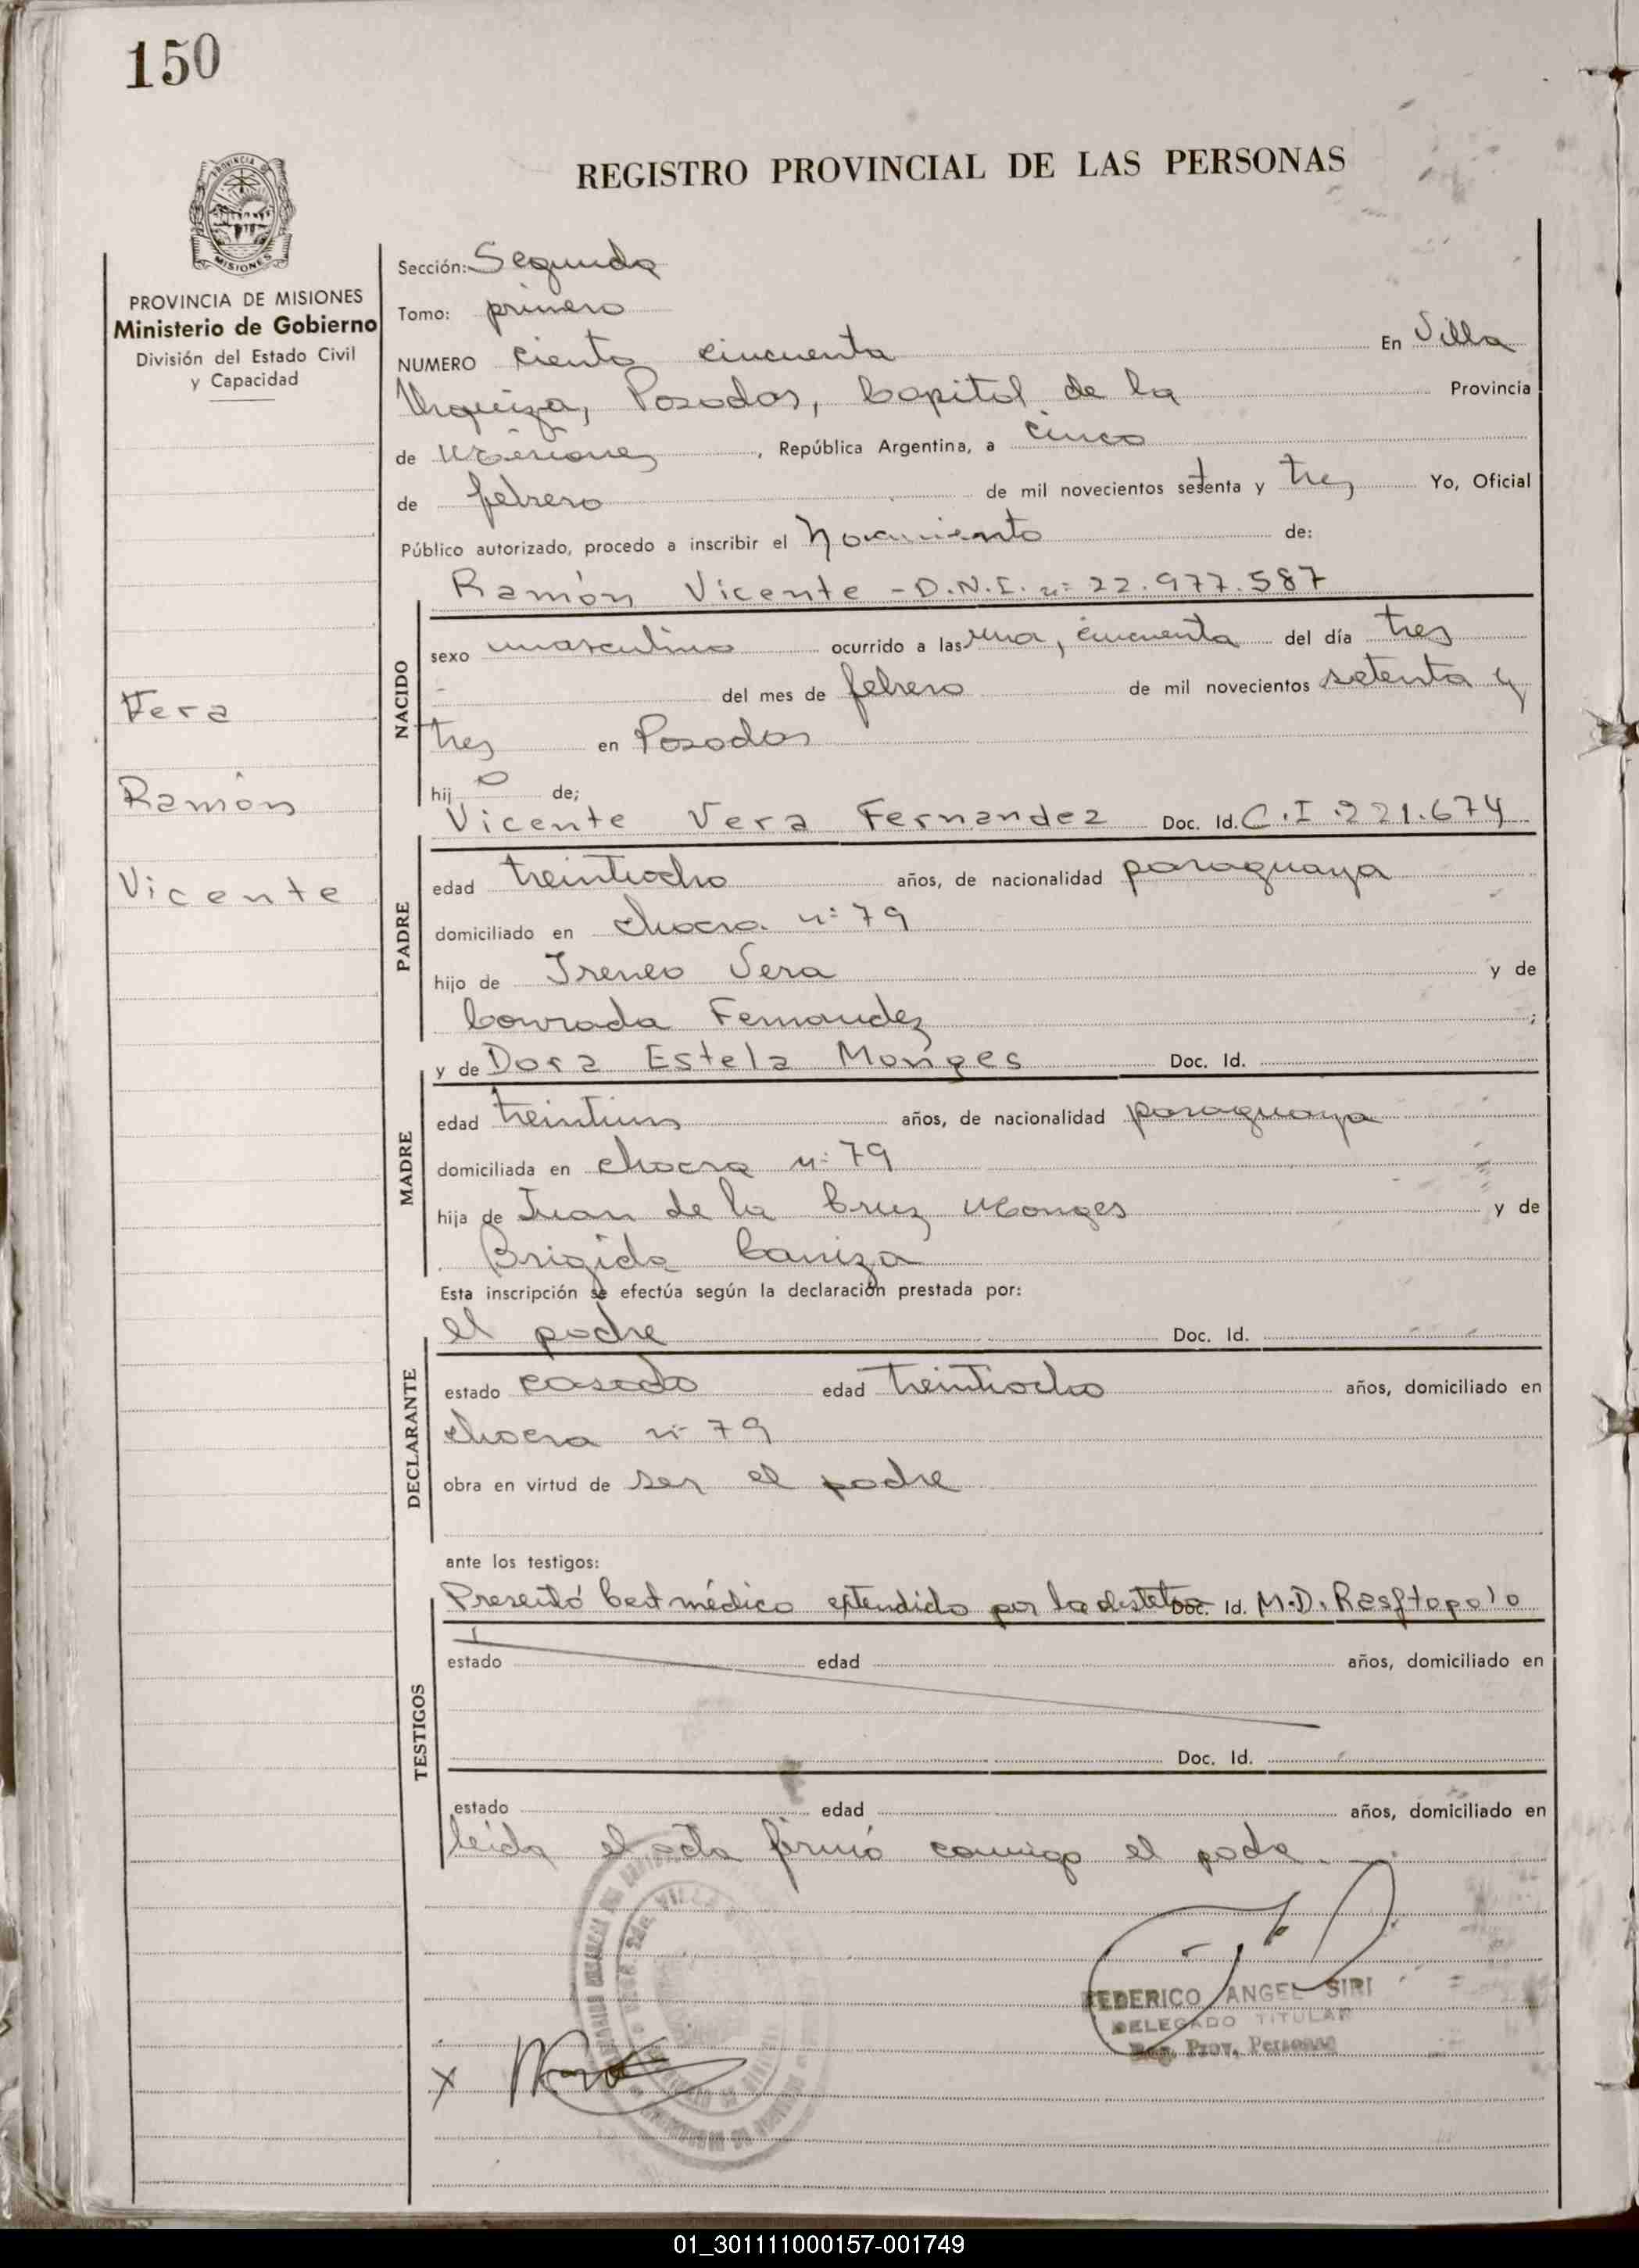 150
REGISTRO PROVINCIAL DE LAS PERSONAS
PROVINCIA DE MISIONES
Ministerio de Gobierno
División del Estado Civil
y Capacidad
Vera
Ramón
Vicente
Sección: Segunda
Tomo: primero
NUMERO ciento cincuenta En Villa
Urquiza, Posadas, Capital de la Provincia
de Misiones, República Argentina, a cinco
de febrero de mil novecientos setenta y tres Yo, Oficial
Público autorizado, procedo a inscribir el Nacimiento de:
Ramón Vicente - D.N.I. nº 22.977.587
NACIDO
sexo masculino ocurrido a las una, cincuenta del día tres
del mes de febrero de mil novecientos setenta y
tres en Posadas
hijo de;
Vicente Vera Fernandez Doc. Id. C.I. 221.674
PADRE
edad treintiocho años, de nacionalidad paraguaya
domiciliado en chacra nº 79
hijo de Ireneo Vera y de
Conrada Fernandez ;
y de Dora Estela Monges Doc. Id.
MADRE
edad treintiun años, de nacionalidad paraguaya
domiciliada en chacra nº 79
hija de Juan de la Cruz Monges y de
Brigida Caniza
Esta inscripción se efectúa según la declaración prestada por:
el padre Doc. Id.
DECLARANTE
estado casado edad treintiocho años, domiciliado en
chacra nº 79
obra en virtud de ser el padre
ante los testigos:
Presentó Cert médico extendido por la Doc. Id. M.D.
TESTIGOS
estado edad años, domiciliado en
Doc. Id.
estado edad años, domiciliado en
leída el acta firmó conmigo el padre.
FEDERICO ANGEL SIRI
DELEGADO TITULAR
Reg. Prov. Personas
X
01_301111000157-001749